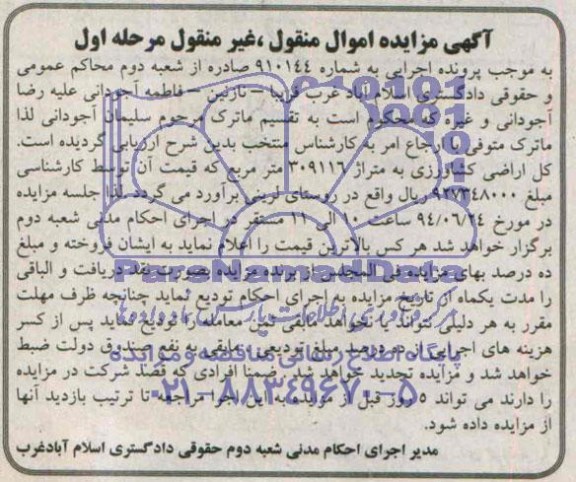 آگهی مزایده اموال منقول ،غیر منقول مرحله اول
به موجب پرونده اجرایی به شماره ۹۱۰۱۴۴ صادره از شعبه دوم محاکم عمومی
و حقوقی دادگستری اسلام آباد غرب فریبا – نازنین – فاطمه آجودانی علیه رضا
آجودانی و غیره که محکوم است به تقسیم ماترک مرحوم سلیمان آجودانی لذا
ماترک متوفی با ارجاع امر به کارشناس منتخب بدین شرح ارزیابی گردیده است.
کل اراضی کشاورزی به متراژ ۳۰۹۱۱۶ متر مربع که قیمت آن توسط کارشناسی
مبلغ ۹۲۷۳۴۸۰۰۰ ریال واقع در روستای لرینی برآورد می گردد لذا جلسه مزایده
در مورخ ۹۴/۰۶/۲۴ ساعت ۱۰ الی ۱۱ مستقر در اجرای احکام مدنی شعبه دوم
برگزار خواهد شد هر کس بالاترین قیمت را اعلام نماید به ایشان فروخته و مبلغ
ده درصد بهای مزایده فی المجلس از برنده مزایده بصورت نقد دریافت و الباقی
را مدت یکماه از تاریخ مزایده به اجرای احکام تودیع نماید چنانچه ظرف مهلت
مقرر به هر دلیلی نتواند یا نخواهد مابقی ثمن معامله را تودیع نماید پس از کسر
هزینه های اجرایی از ده درصد مبلغ تودیعی مابقی به نفع صندوق دولت ضبط
خواهد شد و مزایده تجدید خواهد شد. ضمنا افرادی که قصد شرکت در مزایده
را دارند می تواند ۵ روز قبل از مزایده به این اجرا مراجعه تا ترتیب بازدید آنها
از مزایده داده شود.
مدیر اجرای احکام مدنی شعبه دوم حقوقی دادگستری اسلام آبادغرب
ParsNamadData
مرکز فرآوری اطلاعات پارس نماد داده ها
پایگاه اطلاع رسانی مناقصه و مزایده
۰۲۱-۸۸۳۴۹۶۷۰-۵